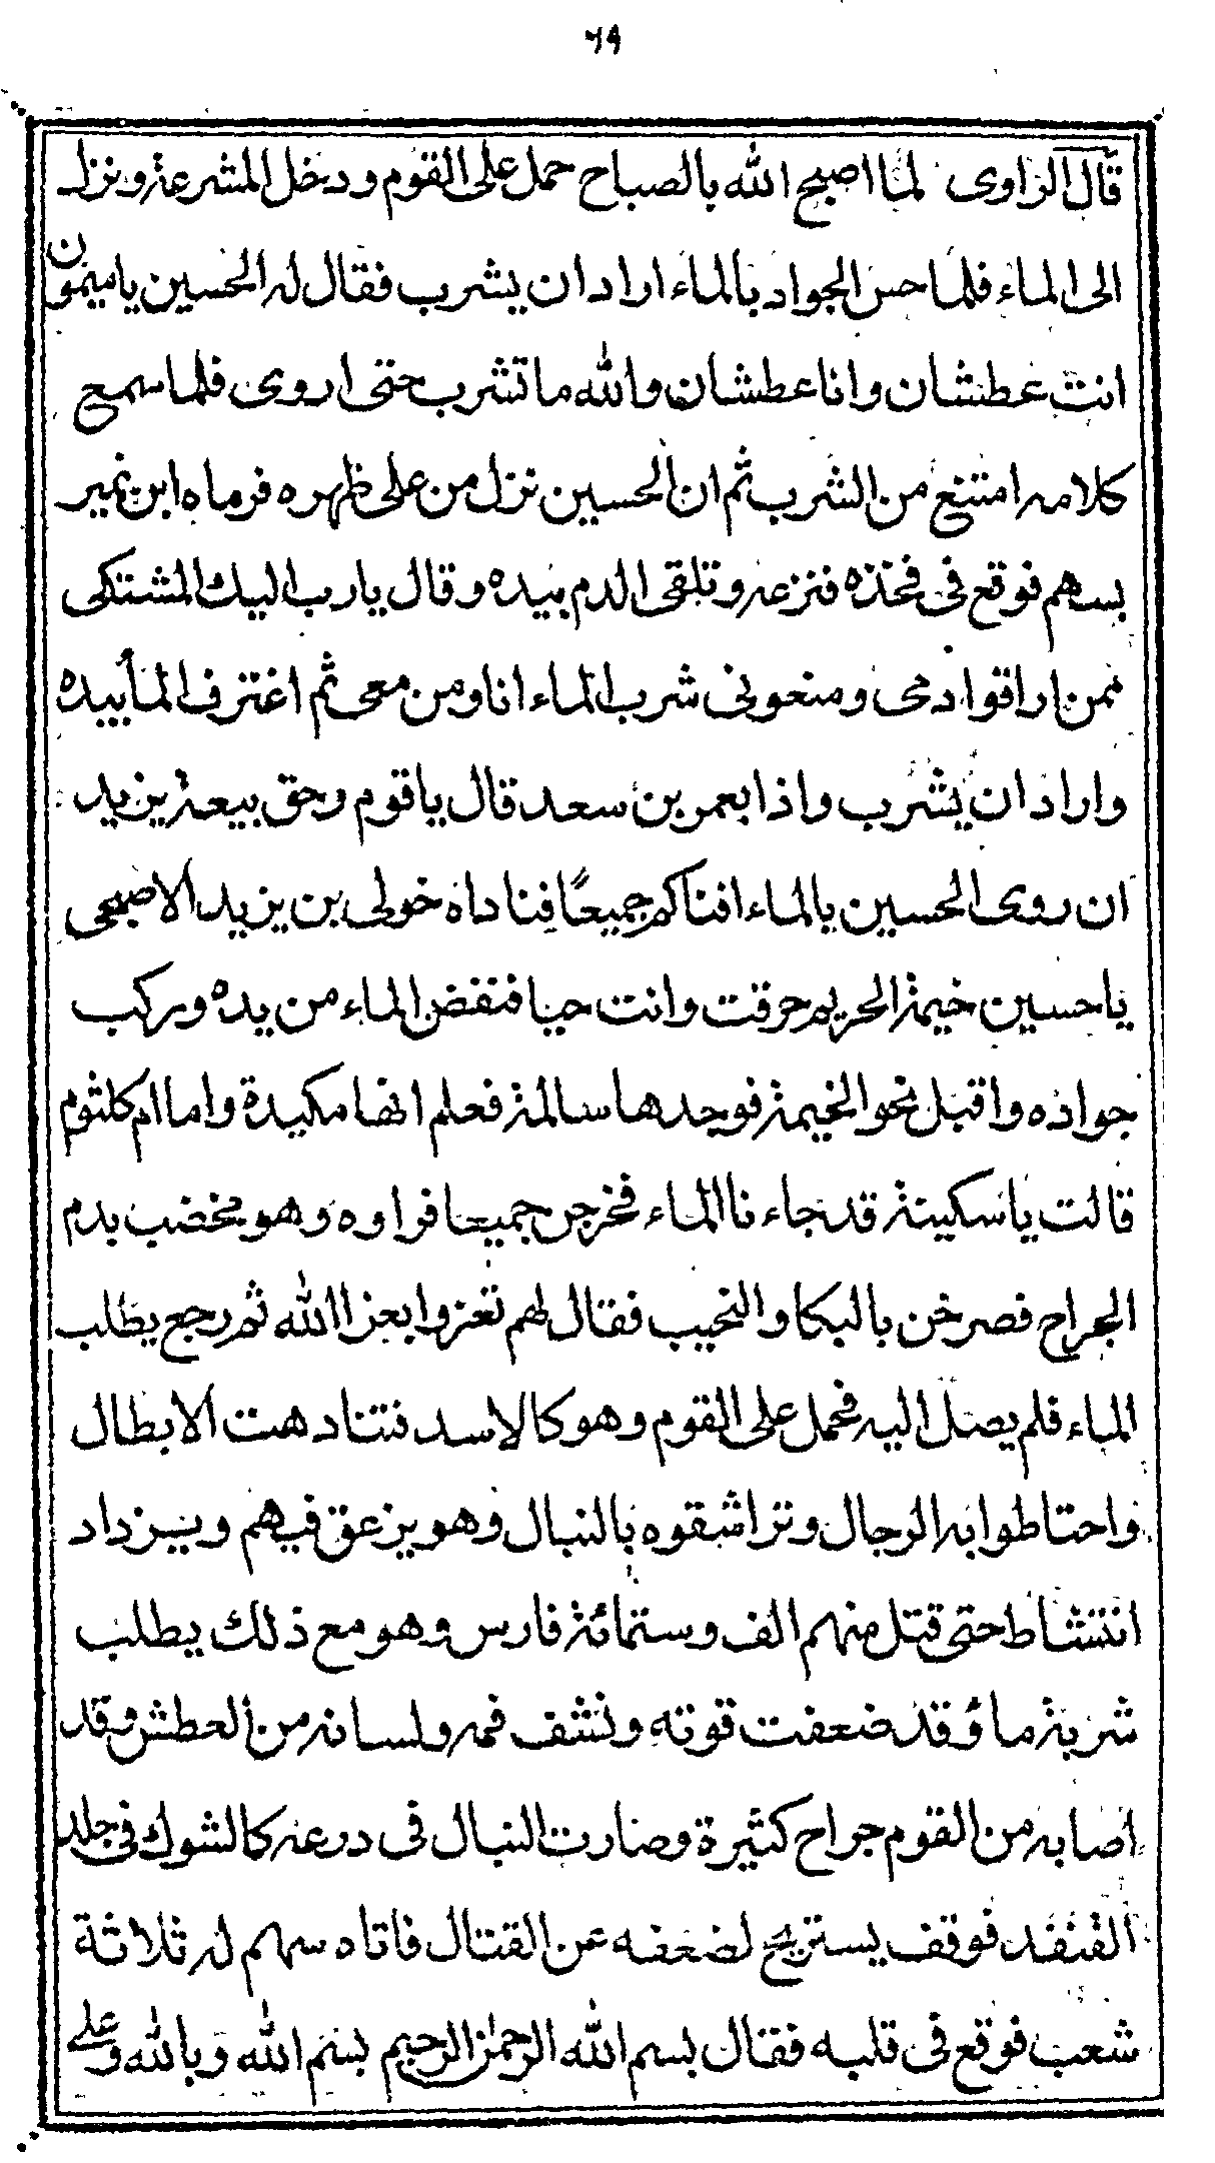 ٦٩
قال الراوى لما اصبح الله بالصباح حمل على القوم ودخل المشرعة ونزل
الى الماء فلما حس الجواد بالماء اراد ان يشرب فقال له الحسين يا ميمون
انت عطشان وانا عطشان والله ما تشرب حتى اروى فلما سمع
كلامه امتنع من الشرب ثم ان الحسين نزل من على ظهره فرماه ابن نمير
بسهم فوقع فى فخذه فنزعه وتلقى الدم بيده وقال يا رب اليك المشتكى
ممن اراقوا دمى ومنعونى شرب الماء انا ومن معى ثم اغترف الماء بيده
واراد ان يشرب واذا بعمر بن سعد قال يا قوم وحق بيعة يزيد
ان روى الحسين بالماء افناكم جميعًا فناداه خولى بن يزيد الاصبحى
يا حسين خيمة الحريم حرقت وانت حيا فنفض الماء من يده وركب
جواده واقبل نحو الخيمة فوجدها سالمة فعلم انها مكيدة واما ام كلثوم
قالت يا سكينة قد جاء نا الماء فخرجن جميعا فراوه وهو مخضب بدم
الجراح فصرخن بالبكا والنحيب فقال لهم تعزوا بعزاالله ثم رجع يطلب
الماء فلم يصل اليه فحمل على القوم وهو كالاسد فتنادهت الابطال
واحتاطوا به الرجال وتراشقوه بالنبال وهو يزعق فيهم ويزداد
انتشاط حتى قتل منهم الف وستمائة فارس وهو مع ذلك يطلب
شربة ماؤ وقد ضعفت قوته ونشف فمه ولسانه من العطش وقد
اصابه من القوم جراح كثيرة وصارت النبال فى درعه كالشوك فى جلد
القنفد فوقف يستريح لضعفه عن القتال فاتاه سهم له ثلاثة
شعب فوقع فى قلبه فقال بسم الله الرحمن الرحيم بسم الله وبالله وعلى